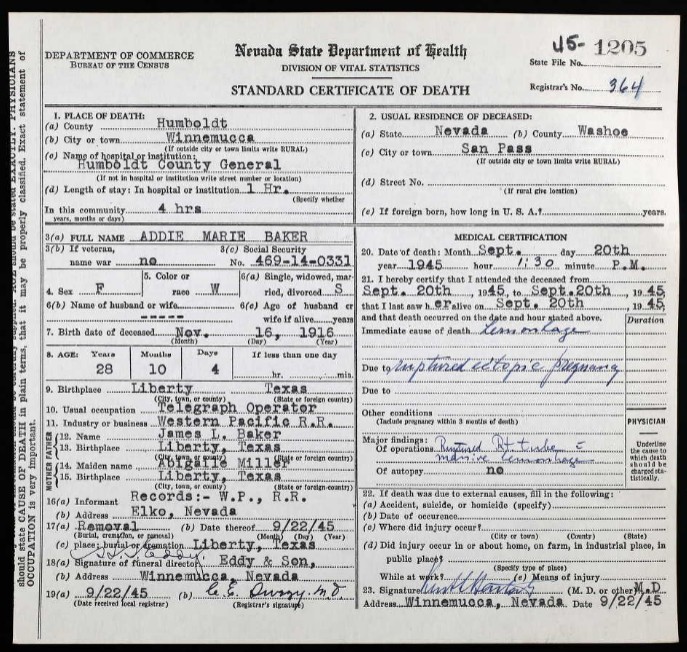 DEPARTMENT OF COMMERCE
BUREAU OF THE CENSUS
Nevada State Department of Health
DIVISION OF VITAL STATISTICS
STANDARD CERTIFICATE OF DEATH
45- 1205
State File No.
Registrar's No. 364
1. PLACE OF DEATH:
(a) County Humboldt
(b) City or town Winnemucca
(If outside city or town limits write RURAL)
(c) Name of hospital or institution:
Humboldt County General
(If not in hospital or institution write street number or location)
(d) Length of stay: In hospital or institution 1 Hr.
(Specify whether
In this community 4 hrs
years, months or days)
2. USUAL RESIDENCE OF DECEASED:
(a) State Nevada (b) County Washoe
(c) City or town San Pass
(If outside city or town limits write RURAL)
(d) Street No.
(If rural give location)
(e) If foreign born, how long in U. S. A.? years.
3(a) FULL NAME ADDIE MARIE BAKER
3(b) If veteran, name war no
3(c) Social Security No. 469-14-0331
4. Sex F
5. Color or race W
6(a) Single, widowed, married, divorced S
6(b) Name of husband or wife -----
6(c) Age of husband or wife if alive years
7. Birth date of deceased Nov. 16, 1916
(Month) (Day) (Year)
8. AGE: Years 28 Months 10 Days 4 If less than one day hr. min.
9. Birthplace Liberty Texas
(City, town, or county) (State or foreign country)
10. Usual occupation Telegraph Operator
11. Industry or business Western Pacific R.R.
FATHER
12. Name James L. Baker
13. Birthplace Liberty, Texas
MOTHER
14. Maiden name Abigaile Miller
15. Birthplace Liberty, Texas
(City, town or county) (State or foreign country)
16(a) Informant Records:- W.P., R.R.
(b) Address Elko, Nevada
17(a) Removal (b) Date thereof 9/22/45
(Burial, cremation, or removal) (Month) (Day) (Year)
(c) place; burial or cremation Liberty, Texas
18(a) Signature of funeral director Eddy & Son,
(b) Address Winnemucca, Nevada
19(a) 9/22/45 (b)
(Date received local registrar) (Registrar's signature)
MEDICAL CERTIFICATION
20. Date of death: Month Sept. day 20th
year 1945 hour 1:30 minute P.M.
21. I hereby certify that I attended the deceased from
Sept. 20th, 1945, to Sept.20th, 1945,
that I last saw h er alive on Sept. 20th, 1945,
and that death occurred on the date and hour stated above.
Duration
Immediate cause of death
Due to ruptured ectopic pregnancy
Due to
Other conditions
(Include pregnancy within 3 months of death)
PHYSICIAN
Major findings:
Of operations Ruptured Rt tube
massive
Of autopsy no
Underline the cause to which death should be charged statistically.
22. If death was due to external causes, fill in the following:
(a) Accident, suicide, or homicide (specify)
(b) Date of occurence
(c) Where did injury occur?
(City or town) (County) (State)
(d) Did injury occur in or about home, on farm, in industrial place, in public place?
(Specify type of place)
While at work? (e) Means of injury
23. Signature (M. D. or other) M.D
Address Winnemucca, Nevada Date 9/22/45
should state CAUSE OF DEATH in plain terms, that it may be properly classified. Exact statement of
OCCUPATION is very important.